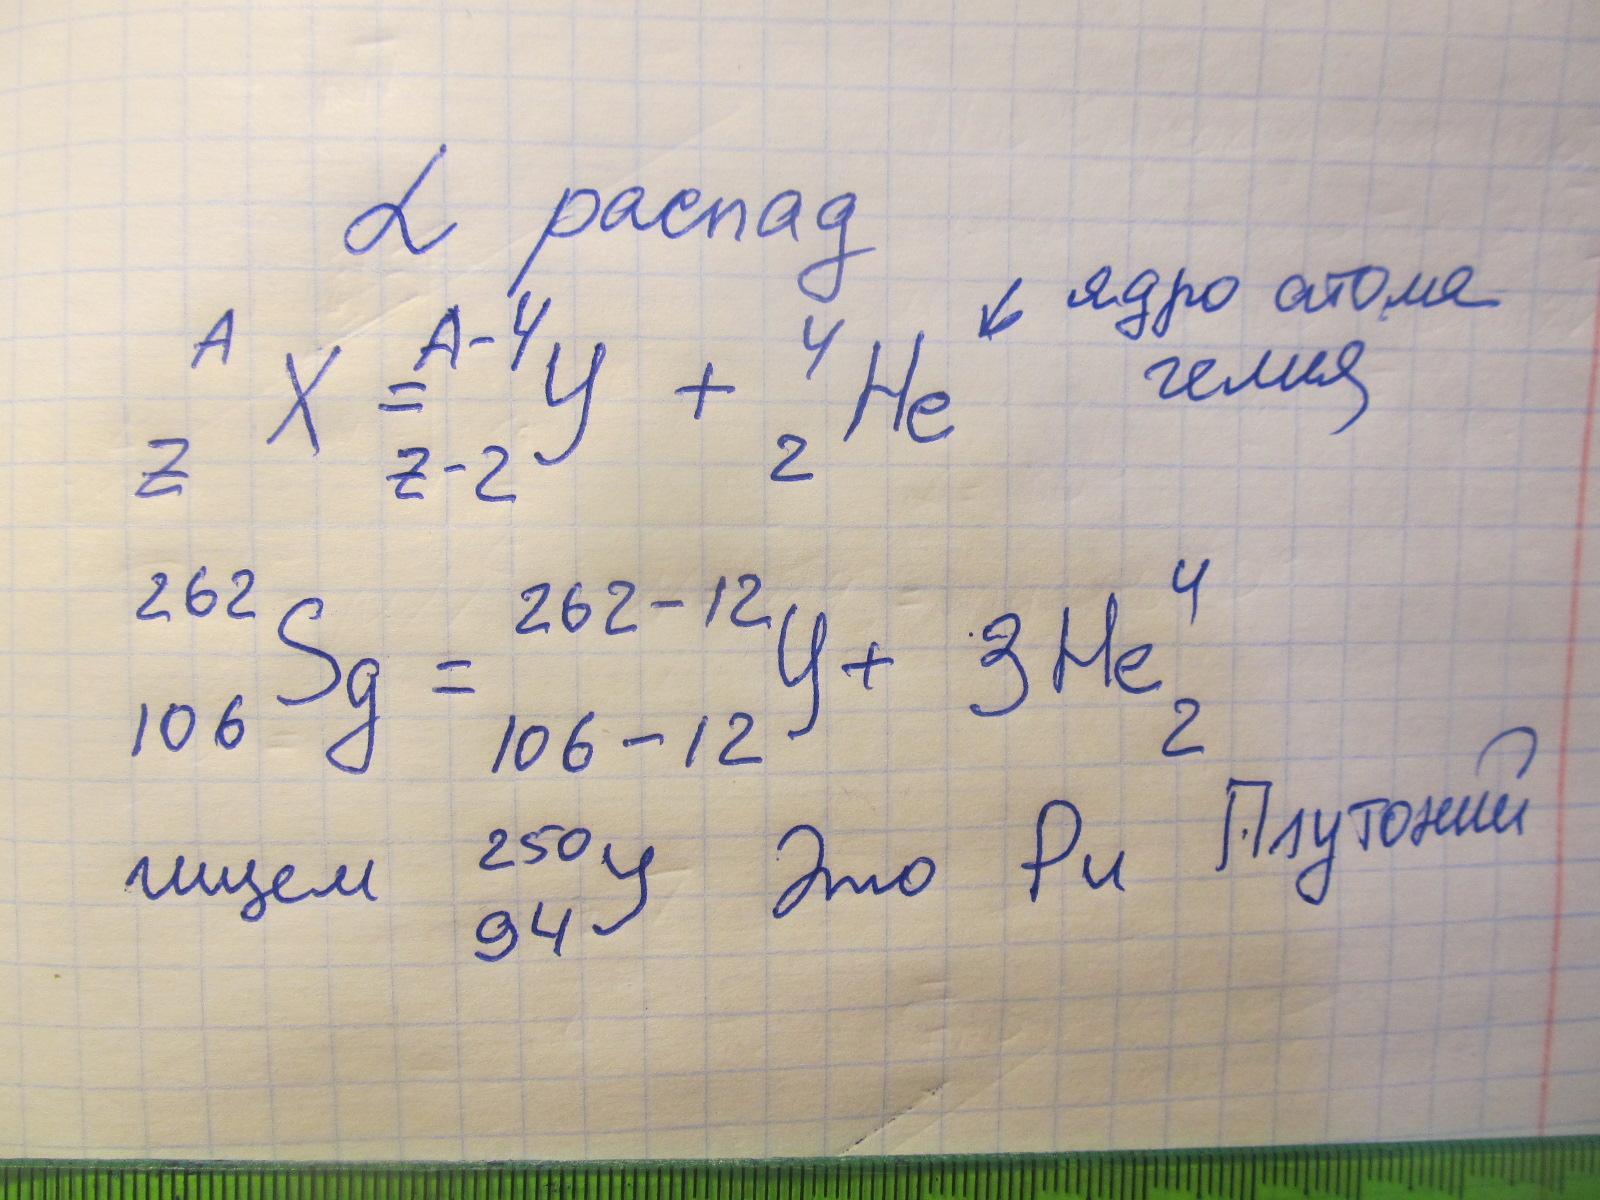 α распад
ᴬ_Z X = ᴬ⁻⁴_Z₋₂ У + ⁴₂He ↙ ядро атома
гелия
²⁶²₁₀₆Sg = ²⁶²⁻¹²₁₀₆₋₁₂У + 3He⁴₂
ищем ²⁵⁰₉₄У Это Pu Плутоний